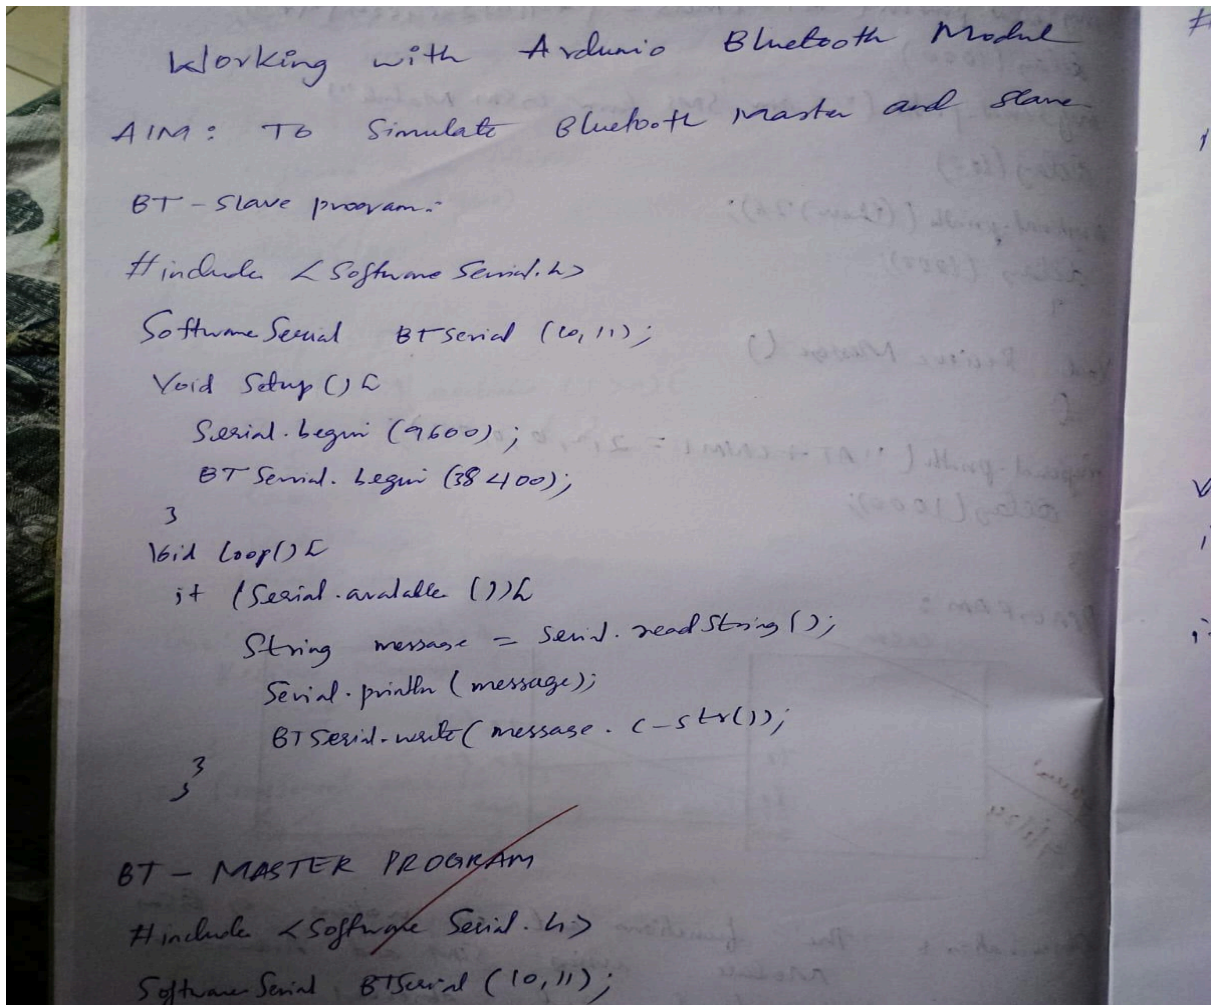 Working with Ardunio Bluetooth Modul
AIM: To Simulate Bluetooth Master and Slave
BT - Slave program:-
#include <Software Serial.h>
Software Serial BTSerial (10, 11);
Void Setup () {
Serial.begin (9600);
BT Serial. begin (38400);
}
Void loop() {
if (Serial.avalable ()) {
String message = Serial. readString ();
Serial.println (message);
BTSerial.write( message. c_str());
}
}
BT - MASTER PROGRAM
#include <Software Serial.h>
Software Serial BTSerial (10, 11);